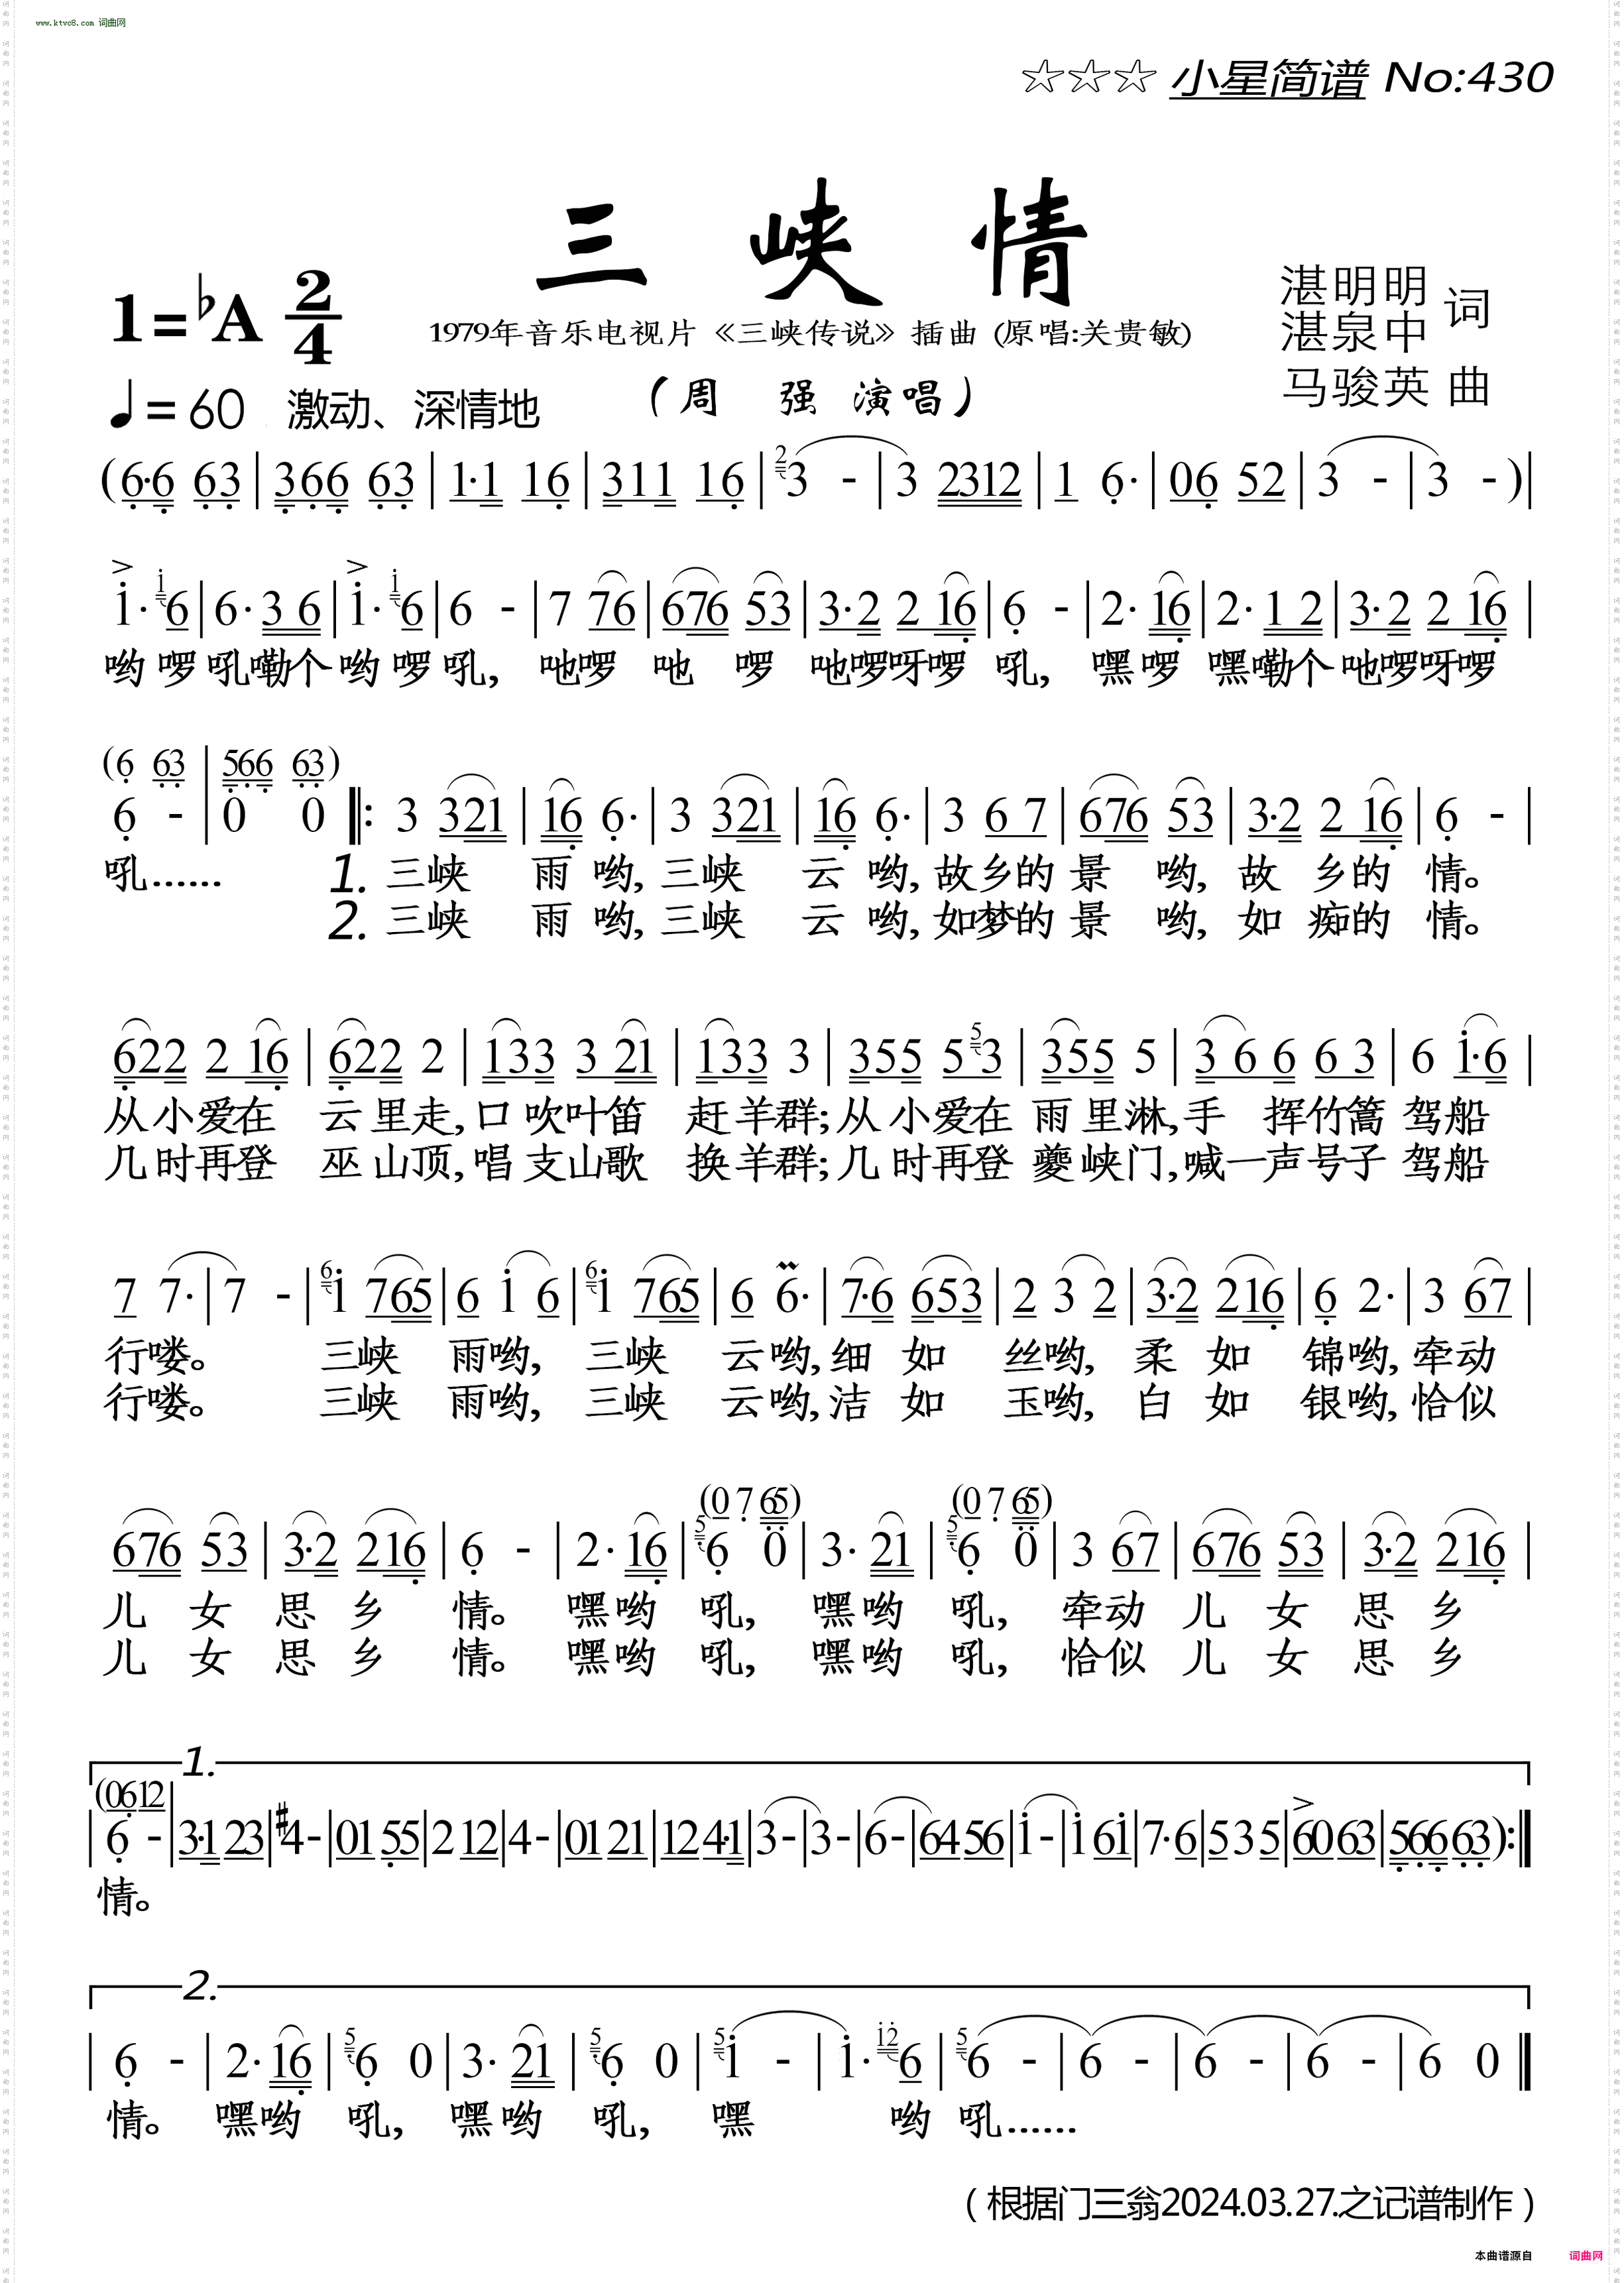 www.ktvc8.com 词曲网
☆☆☆ 小星简谱 No:430
三峡情
1=♭A 2/4
1979年音乐电视片《三峡传说》插曲 (原唱:关贵敏)
湛明明
湛泉中 词
马骏英 曲
♩=60 激动、深情地
(周 强 演唱)
(6·6 63|366 63|1·1 16|311 16|23 -|3 2312|1 6·|06 52|3 -|3 -)|
i· i6|6·3 6|i· i6|6 -|7 76|676 53|3·2 2 16|6 -|2· 16|2·1 2|3·2 2 16|
哟啰吼嘞个哟啰吼, 吔啰 吔 啰 吔啰呀啰 吼, 嘿啰 嘿嘞个吔啰呀啰
(6 63|566 63)
6 -|0 0‖:3 321|16 6·|3 321|16 6·|3 6 7|676 53|3·2 2 16|6 -|
吼…… 1. 三峡 雨哟, 三峡 云哟, 故乡的景 哟, 故 乡的 情。
2. 三峡 雨哟, 三峡 云哟, 如梦的景 哟, 如 痴的 情。
622 2 16|622 2|133 3 21|133 3|355 5 53|355 5|3 6 6 6 3|6 i·6|
从小爱在 云里走, 口吹叶笛 赶羊群; 从小爱在 雨里淋, 手 挥竹篙 驾船
几时再登 巫山顶, 唱支山歌 换羊群; 几时再登 夔峡门, 喊一声号子 驾船
7 7·|7 -|6i 765|6 i 6|6i 765|6 6·|7·6 653|2 3 2|3·2 216|6 2·|3 67|
行喽。 三峡 雨哟, 三峡 云哟, 细 如 丝哟, 柔 如 锦哟, 牵动
行喽。 三峡 雨哟, 三峡 云哟, 洁 如 玉哟, 白 如 银哟, 恰似
(0 7 65) (0 7 65)
676 53|3·2 216|6 -|2· 16|56 0|3· 21|56 0|3 67|676 53|3·2 216|
儿 女 思 乡 情。 嘿哟 吼, 嘿哟 吼, 牵动 儿 女 思 乡
儿 女 思 乡 情。 嘿哟 吼, 嘿哟 吼, 恰似 儿 女 思 乡
1.
(0612
|6 -|3·1 23|#4-|01 55|2 12|4-|01 21|12 4·1|3-|3-|6-|64 56|i-|i 6i|7·6|5 3 5|60 63|566 63):‖
情。
2.
|6 -|2· 16|56 0|3· 21|56 0|5i -|i· i26|56 -|6 -|6 -|6 -|6 0‖
情。 嘿哟 吼, 嘿哟 吼, 嘿 哟 吼……
(根据门三翁2024.03.27.之记谱制作)
本曲谱源自 词曲网